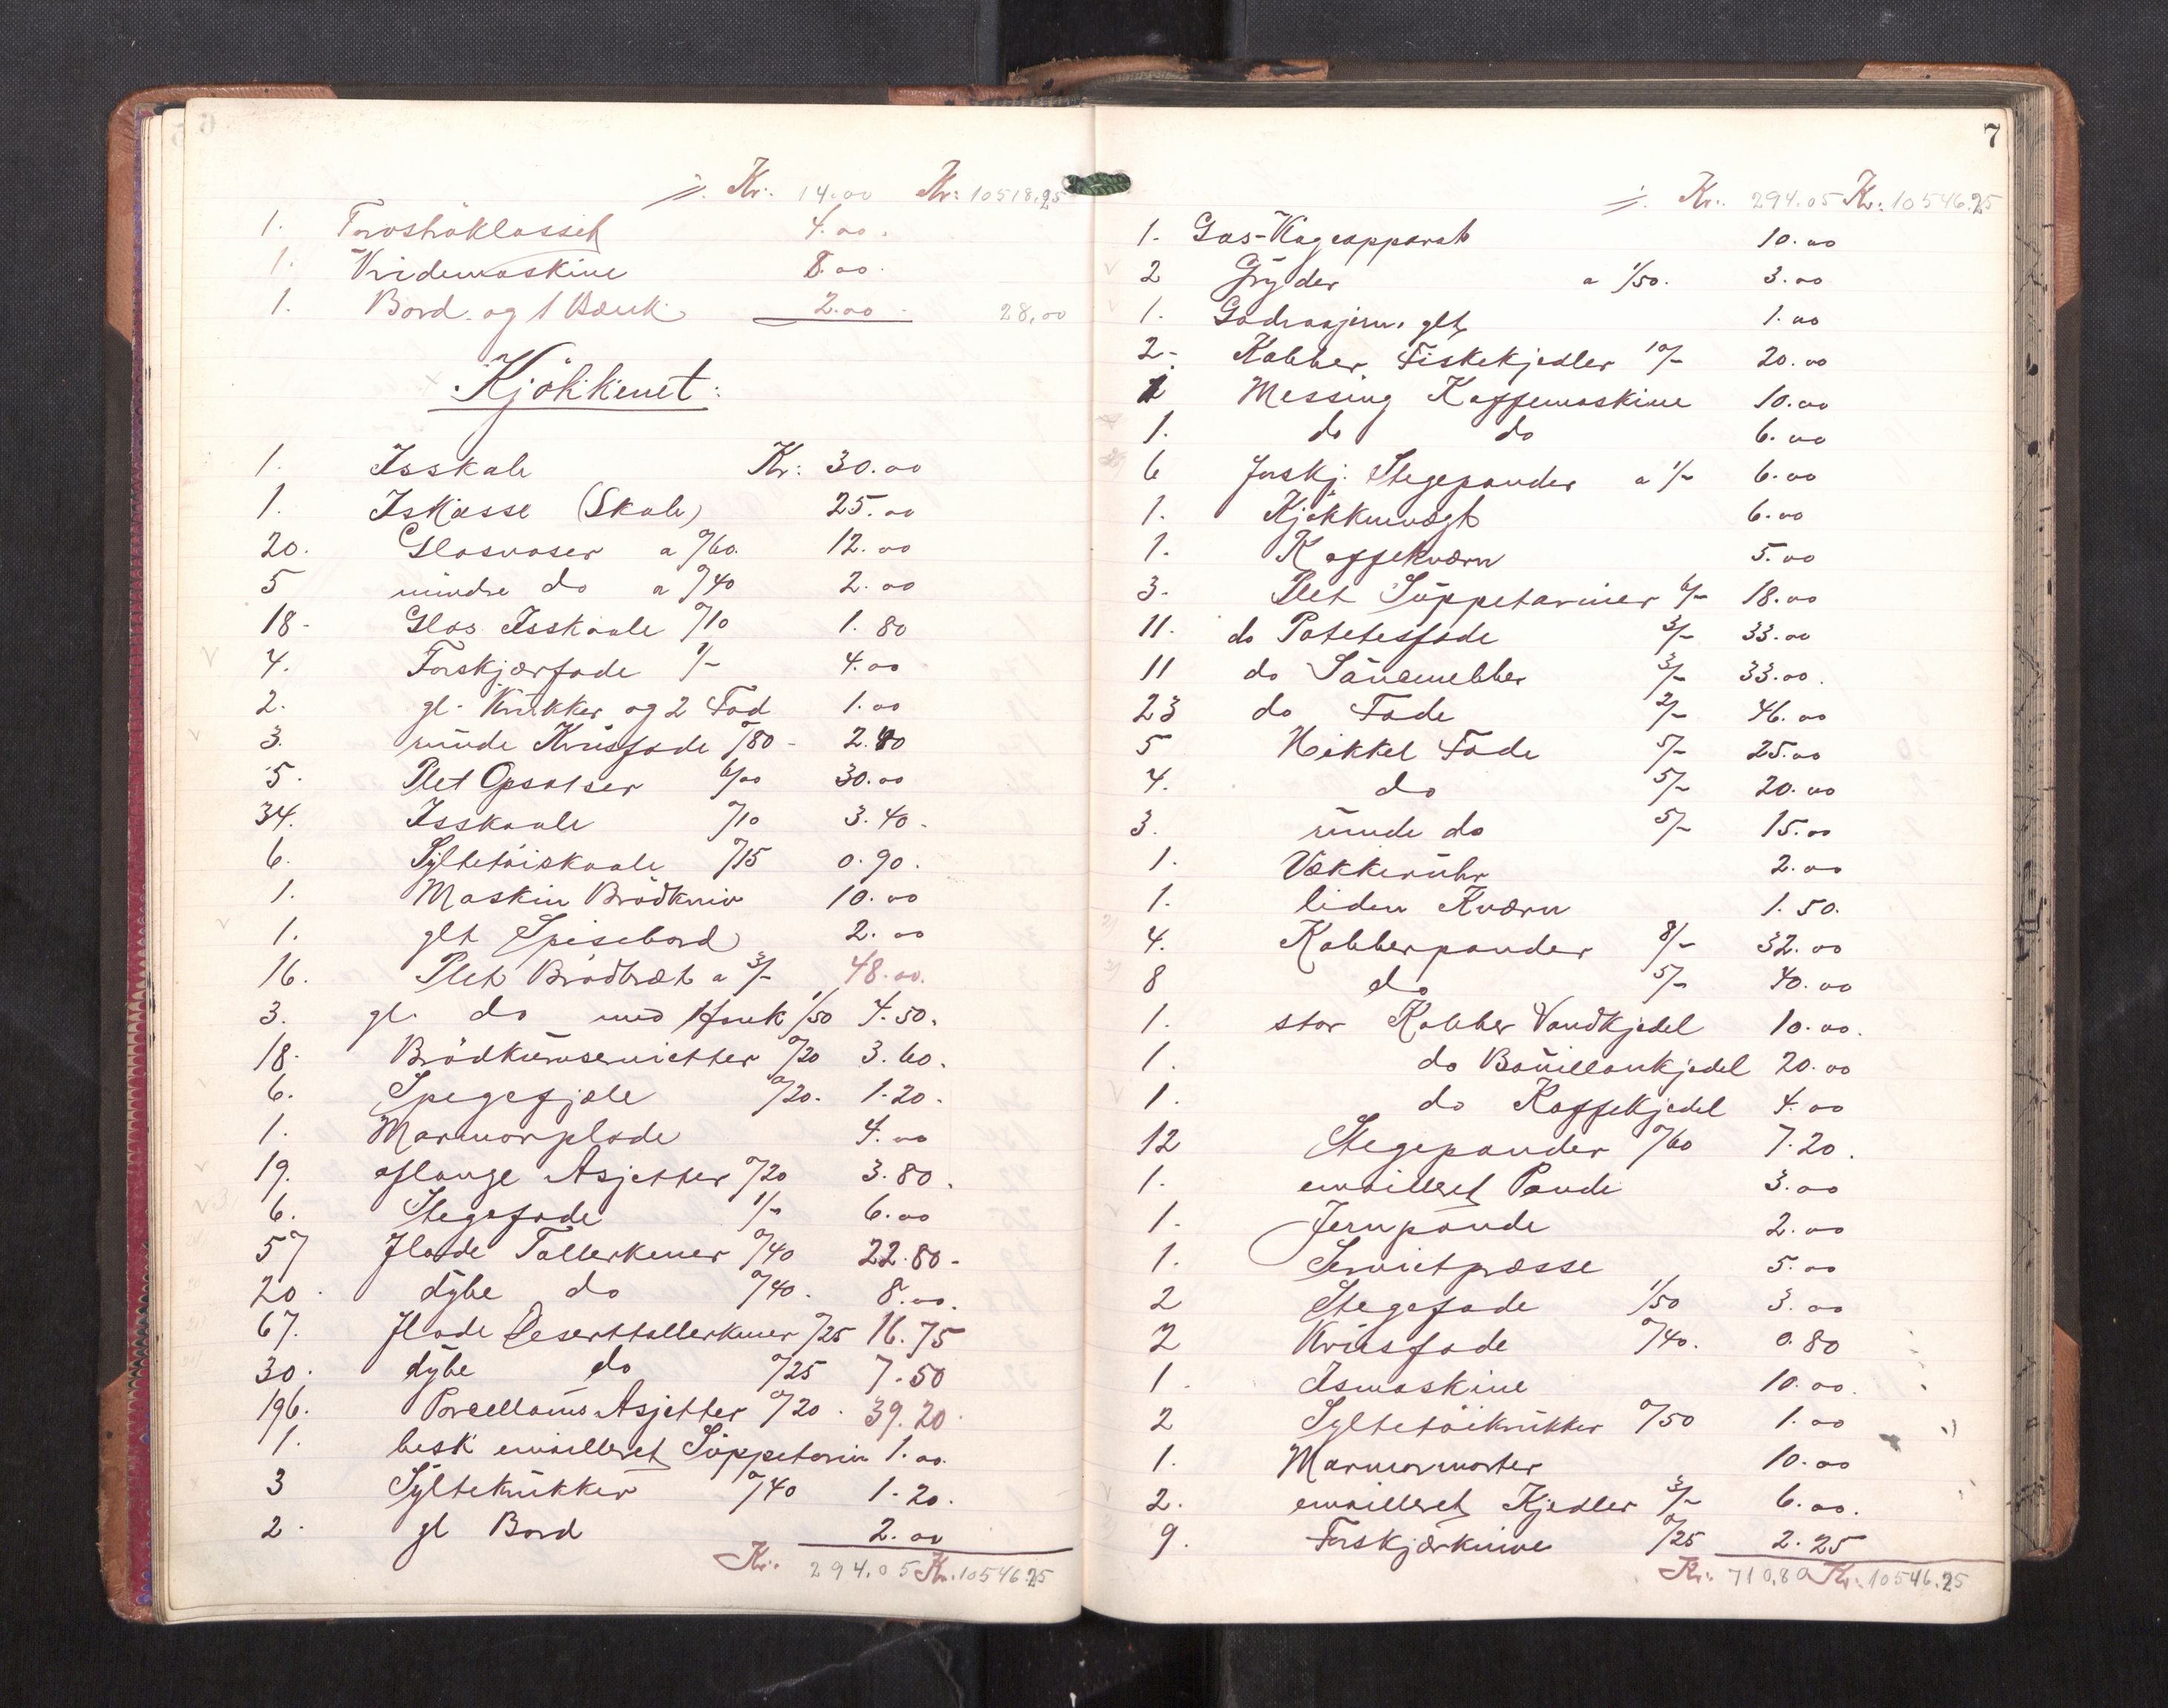 //. Kr: 14.00 Kr: 10518.25
1. Torvströklosset 4.00.
1. Vridemaskine 8.00.
1. Bord og 1 Bænk 2.00 28,00
Kjökkenet:
1. Isskab Kr: 30.00
1. Iskasse (Skab) 25.00
20. Glasvaser a 0/60. 12.00
5 mindre do a 0/40 2.00
18- Glas Isskaale 0/10 1.80
4. Forskjærfade 1/- 4.00
2. gl. Krukker og 2 Fad 1.00
3. runde Krusfade 0/80 - 2.40
5. Plet Opsatser 6/00 30.00
34. Isskaale 0/10 3.40.
6. Syltetöiskaale 0/15 0.90.
1. Maskin Brödkniv 10.00
1. glt Spisebord 2.00
16. Plet Brödbræt a 3/- 48.00.
3. gl. do med Hank 1/50 4.50.
18. Brödkurvservietter 0/20 3.60.
6. Spegefjæle 0/20. 1.20.
1. Marmorplade 4.00
19. aflange Asjetter 0/20 3.80.
6. Stegefade 1/- 6.00
57 flade Tallerkener 0/40 22.80-
20. dybe do 0/40. 8.00.
67. flade Deserttallerkener 0/25 16.75
30. dybe do 0/25 7.50
196. Porcellæns Asjetter 0/20. 39.20.
1. besk. emailleret Suppeterin 1.00.
3 Syltekrukker 0/40 1.20.
2. gl Bord 2.00
Kr: 294.05 Kr. 10546.25
7
//. Kr: 294.05 Kr: 10546.25
1. Gas-Kogeapparat 10.00
2 Gryder a 1/50. 3.00
1. glt 1.00
2- Kobber Fiskekjedler 10/- 20.00
1 Messing Kaffemaskine 10.00
1. do do 6.00
6 forskj. Stegepander a 1/- 6.00
1. Kjökkenvægt 6.00
1. Kaffekværn 5.00
3. Plet Suppetariner 6/- 18.00
11. do Potetesfade 3/- 33.00
11 do Sausnebber 3/- 33.00.
23 do Fade 2/- 46.00
5 Nikkel Fade 5/- 25.00
4. do 5/- 20.00
3. runde do 5/- 15.00
1. Vækkeruhr 2.00
1. liden Kværn 1.50.
4. Kobberpander 8/- 32.00
8 do 5/- 40.00
1. stor Kobber Vandkjedel 10.00.
1. do Bouillonkjedel 20.00
1. do Kaffekjedel 4.00
12 Stegepander 0/60 7.20.
1. emailleret Pande 3.00
1. Jernpande 2.00
1. Servietpresse 5.00
2 Stegefade 1/50 3.00
2 Krusfade 0/40. 0.80
1. Ismaskine 10.00.
2 Syltetöikrukker 0/50 1.00
1. Marmormorter 10.00
2. emailleret Kjedler 3/- 6.00.
9. Forskjærknive 0/25 2.25
Kr: 710,80 Kr: 10546.25